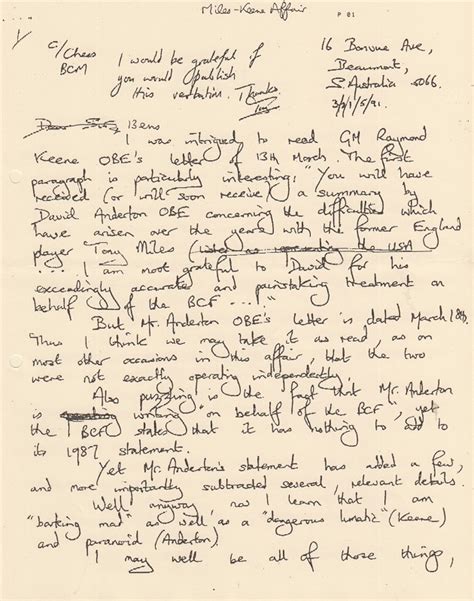 Miles-Keene Affair P 01
1/
c/Chess
BCM
I would be grateful if
you would publish
this verbatim. Thanks
Tony
16 Bonvue Ave,
Beaumont,
S. Australia 5066.
5/91.
Bens
I was intrigued to read GM Raymond
Keene OBE's letter of 13th March. The first
paragraph is particularly interesting; "You will have
received (or will soon receive) a summary by
David Anderton OBE concerning the difficulties which
have arisen over the years with the former England
player Tony Miles (listed as representing the USA
.... I am most grateful to David for his
exceedingly accurate and painstaking treatment on
behalf of the BCF ...."
But Mr. Anderton OBE's letter is dated March 18th,
Thus I think we may take it as read, as on
most other occasions in this affair, that the two
were not exactly operating independently.
Also puzzling is the fact that Mr. Anderton
is writing "on behalf of the BCF", yet
the BCF states that it has nothing to add to
its 1987 statement.
Yet Mr. Anderton's statement has added a few,
and more importantly subtracted several, relevant details.
Well, anyway, now I learn that I am
"barking mad" as well as a "dangerous lunatic" (Keene)
and paranoid (Anderton).
I may well be all of those things,